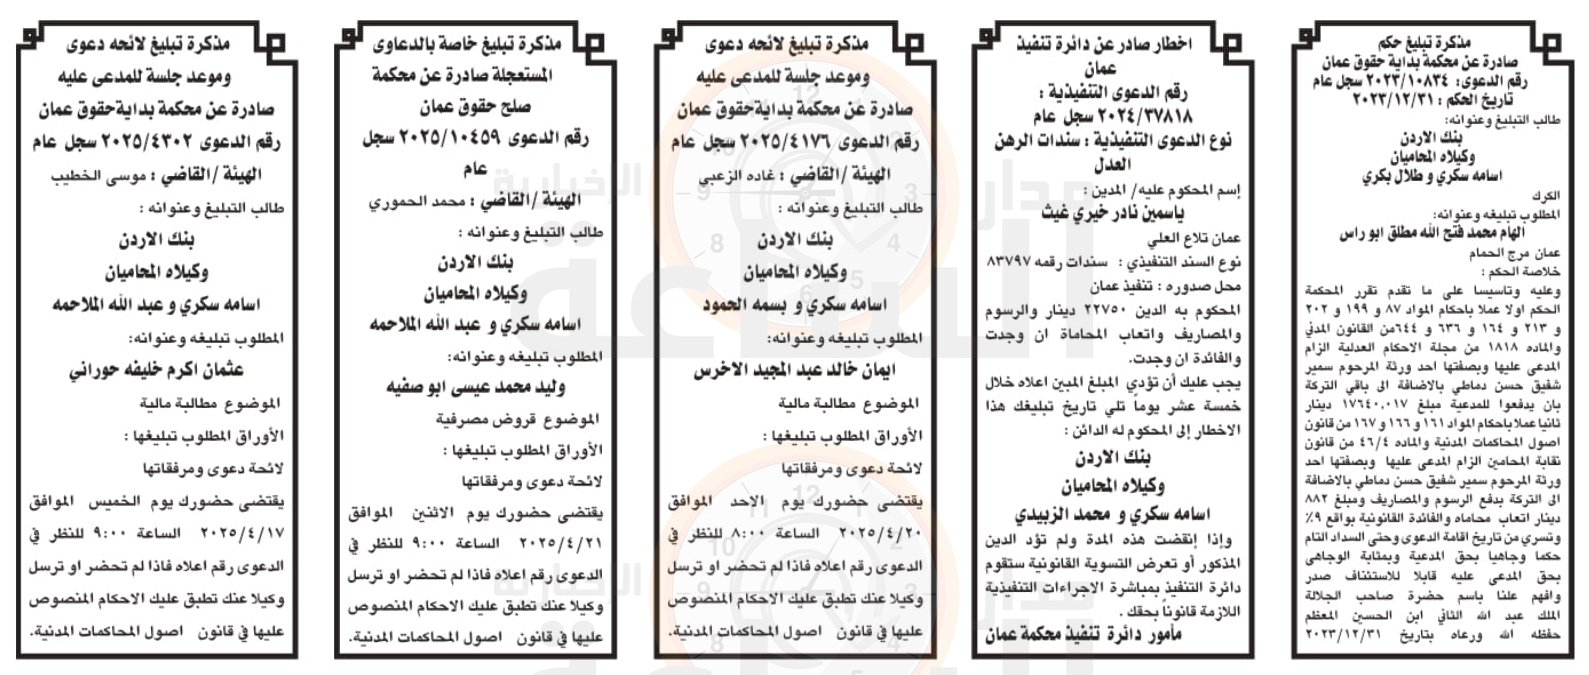 مذكرة تبليغ حكم
صادرة عن محكمة بداية حقوق عمان
رقم الدعوى: ٢٠٢٣/١٠٨٣٤ سجل عام
تاريخ الحكم : ٢٠٢٣/١٢/٣١
طالب التبليغ وعنوانه:
بنك الاردن
وكيلاه المحاميان
اسامه سكري و طلال بكري
الكرك
المطلوب تبليغه وعنوانه:
الهام محمد فتح الله مطلق ابو راس
عمان مرج الحمام
خلاصة الحكم :
وعليه وتاسيسا على ما تقدم تقرر المحكمة
الحكم اولا عملا باحكام المواد ٨٧ و ١٩٩ و ٢٠٢
و ٢١٣ و ١٦٤ و ٦٣٦ و ٦٤٤من القانون المدني
والماده ١٨١٨ من مجلة الاحكام العدلية الزام
المدعى عليها وبصفتها احد ورثة المرحوم سمير
شفيق حسن دماطي بالاضافة الى باقي التركة
بان يدفعوا للمدعية مبلغ ١٧٦٤٠,٠١٧ دينار
ثانيا عملا باحكام المواد ١٦١ و ١٦٦ و ١٦٧ من قانون
اصول المحاكمات المدنية والماده ٤٦/٤ من قانون
نقابة المحامين الزام المدعى عليها وبصفتها احد
ورثة المرحوم سمير شفيق حسن دماطي بالاضافة
الى التركة بدفع الرسوم والمصاريف ومبلغ ٨٨٢
دينار اتعاب محاماه والفائدة القانونية بواقع ٩٪
وتسري من تاريخ اقامة الدعوى وحتى السداد التام
حكما وجاهيا بحق المدعية وبمثابة الوجاهى
بحق المدعى عليه قابلا للاستئناف صدر
وافهم علنا باسم حضرة صاحب الجلالة
الملك عبد الله الثاني ابن الحسين المعظم
حفظه الله ورعاه بتاريخ ٢٠٢٣/١٢/٣١
اخطار صادر عن دائرة تنفيذ
عمان
رقم الدعوى التنفيذية :
٢٠٢٤/٣٧٨١٨ سجل عام
نوع الدعوى التنفيذية : سندات الرهن
العدل
إسم المحكوم عليه/ المدين :
ياسمين نادر خيري غيث
عمان تلاع العلي
نوع السند التنفيذي : سندات رقمه ٨٣٧٩٧
محل صدوره : تنفيذ عمان
المحكوم به الدين ٢٢٧٥٠ دينار والرسوم
والمصاريف واتعاب المحاماة ان وجدت
والفائدة ان وجدت.
يجب عليك أن تؤدي المبلغ المبين اعلاه خلال
خمسة عشر يوماً تلي تاريخ تبليغك هذا
الاخطار إلى المحكوم له الدائن :
بنك الاردن
وكيلاه المحاميان
اسامه سكري و محمد الزبيدي
وإذا إنقضت هذه المدة ولم تؤد الدين
المذكور أو تعرض التسوية القانونية ستقوم
دائرة التنفيذ بمباشرة الاجراءات التنفيذية
اللازمة قانوناً بحقك.
مأمور دائرة تنفيذ محكمة عمان
مذكرة تبليغ لائحه دعوى
وموعد جلسة للمدعى عليه
صادرة عن محكمة بدايةحقوق عمان
رقم الدعوى ٢٠٢٥/٤١٧٦ سجل عام
الهيئة /القاضي : غاده الزعبي
طالب التبليغ وعنوانه :
بنك الاردن
وكيلاه المحاميان
اسامه سكري و بسمه الحمود
المطلوب تبليغه وعنوانه:
ايمان خالد عبد المجيد الاخرس
الموضوع مطالبة مالية
الأوراق المطلوب تبليغها :
لائحة دعوى ومرفقاتها
يقتضى حضورك يوم الاحد الموافق
٢٠٢٥/٤/٢٠ الساعة ٨:٠٠ للنظر في
الدعوى رقم اعلاه فاذا لم تحضر او ترسل
وكيلا عنك تطبق عليك الاحكام المنصوص
عليها في قانون اصول المحاكمات المدنية.
مذكرة تبليغ خاصة بالدعاوى
المستعجلة صادرة عن محكمة
صلح حقوق عمان
رقم الدعوى ٢٠٢٥/١٠٤٥٩ سجل
عام
الهيئة /القاضي : محمد الحموري
طالب التبليغ وعنوانه :
بنك الاردن
وكيلاه المحاميان
اسامه سكري و عبد الله الملاحمه
المطلوب تبليغه وعنوانه:
وليد محمد عيسى ابو صفيه
الموضوع قروض مصرفية
الأوراق المطلوب تبليغها :
لائحة دعوى ومرفقاتها
يقتضى حضورك يوم الاثنين الموافق
٢٠٢٥/٤/٢١ الساعة ٩:٠٠ للنظر في
الدعوى رقم اعلاه فاذا لم تحضر او ترسل
وكيلا عنك تطبق عليك الاحكام المنصوص
عليها في قانون اصول المحاكمات المدنية.
مذكرة تبليغ لائحه دعوى
وموعد جلسة للمدعى عليه
صادرة عن محكمة بدايةحقوق عمان
رقم الدعوى ٢٠٢٥/٤٣٠٢ سجل عام
الهيئة /القاضي : موسى الخطيب
طالب التبليغ وعنوانه :
بنك الاردن
وكيلاه المحاميان
اسامه سكري و عبد الله الملاحمه
المطلوب تبليغه وعنوانه:
عثمان اكرم خليفه حوراني
الموضوع مطالبة مالية
الأوراق المطلوب تبليغها :
لائحة دعوى ومرفقاتها
يقتضى حضورك يوم الخميس الموافق
٢٠٢٥/٤/١٧ الساعة ٩:٠٠ للنظر في
الدعوى رقم اعلاه فاذا لم تحضر او ترسل
وكيلا عنك تطبق عليك الاحكام المنصوص
عليها في قانون اصول المحاكمات المدنية.
مدار الساعة الإخبارية